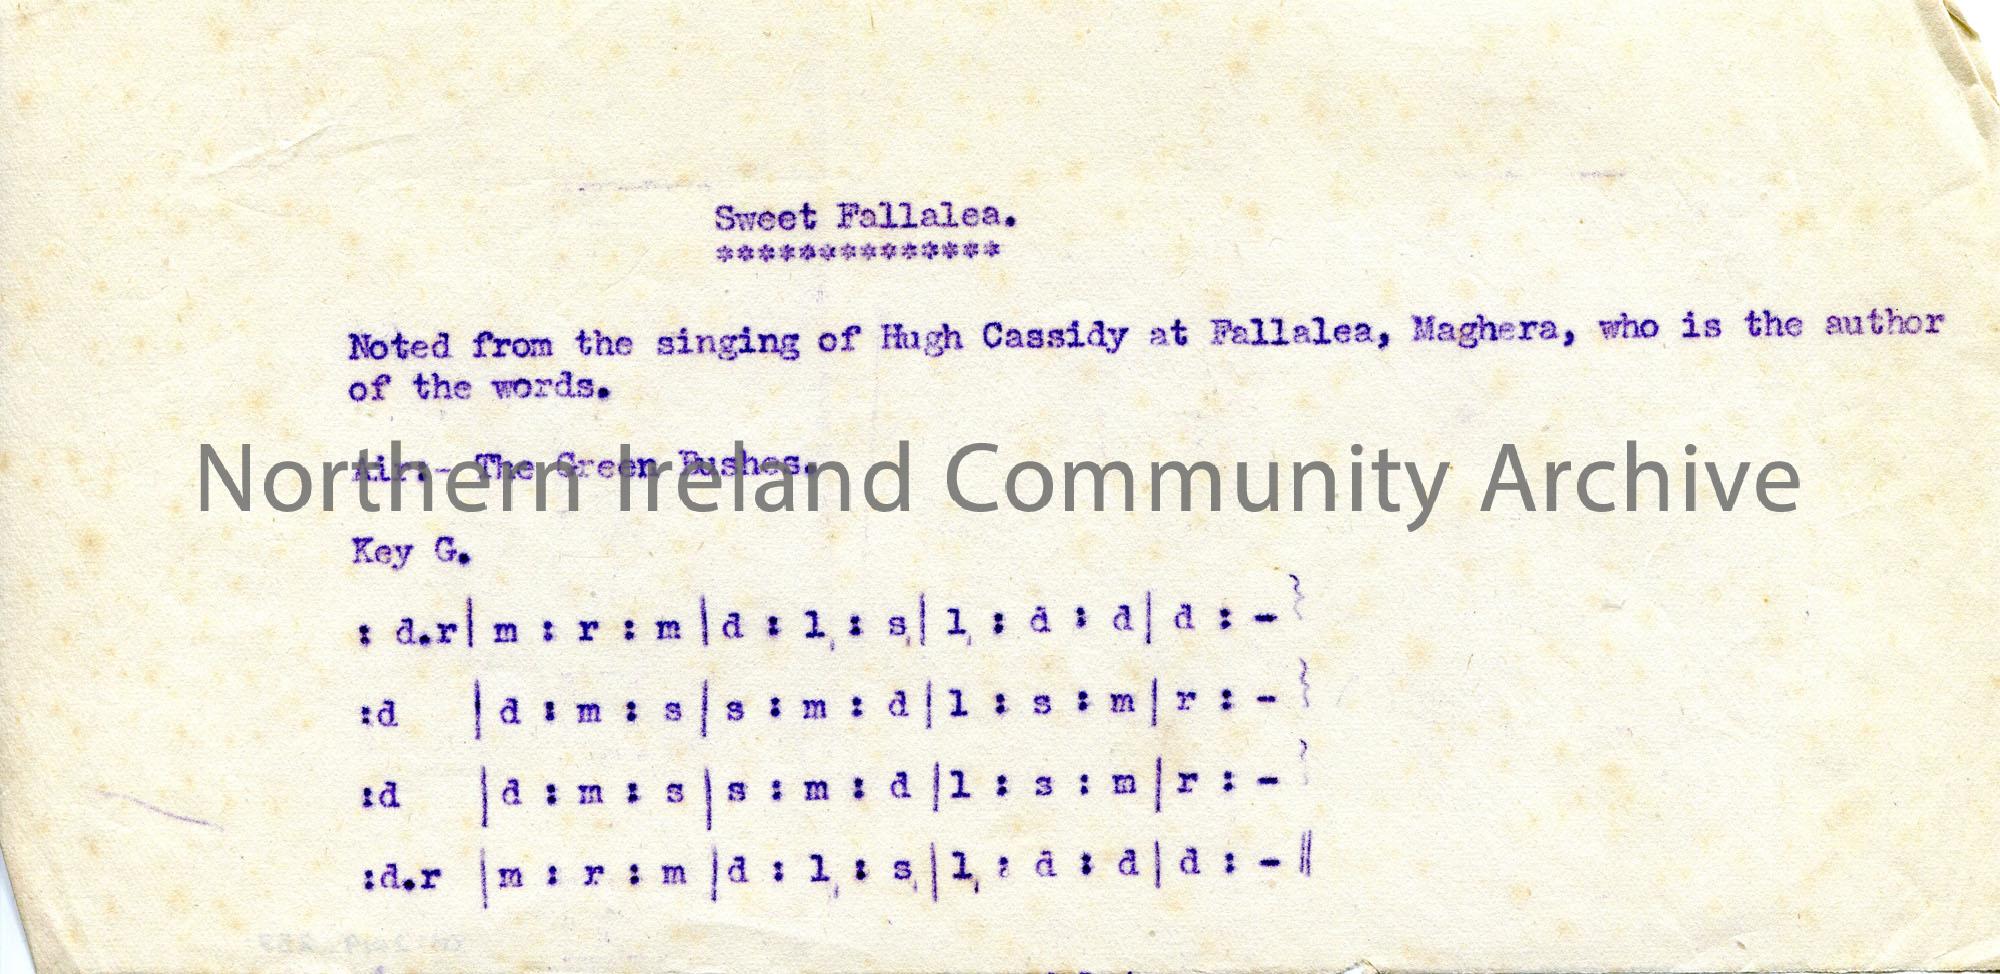 Sweet Fallalea.
**************
Noted from the singing of Hugh Cassidy at Fallalea, Maghera, who is the author
of the words.
Air:- The Green Bushes.
Northern Ireland Community Archive
Key G.
: d.r| m : r : m |d : l, : s,| l, : d : d | d : - }
:d | d : m : s | s : m : d | l : s : m | r : - }
:d | d : m : s | s : m : d | l : s : m | r : - }
:d.r | m : r : m | d : l, : s, | l, : d : d | d : - ||